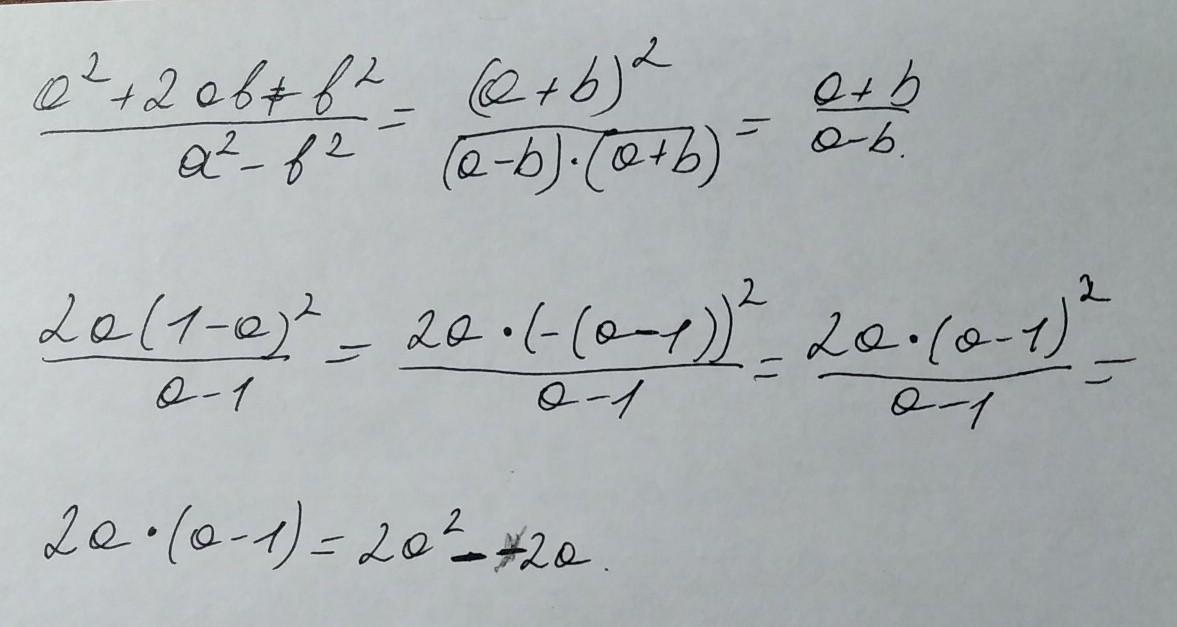 (a² + 2ab + b²)/(a² - b²) = (a+b)²/((a-b)·(a+b)) = (a+b)/(a-b).
2a(1-a)²/(a-1) = 2a·(-(a-1))²/(a-1) = 2a·(a-1)²/(a-1) =
2a·(a-1) = 2a² - 2a.